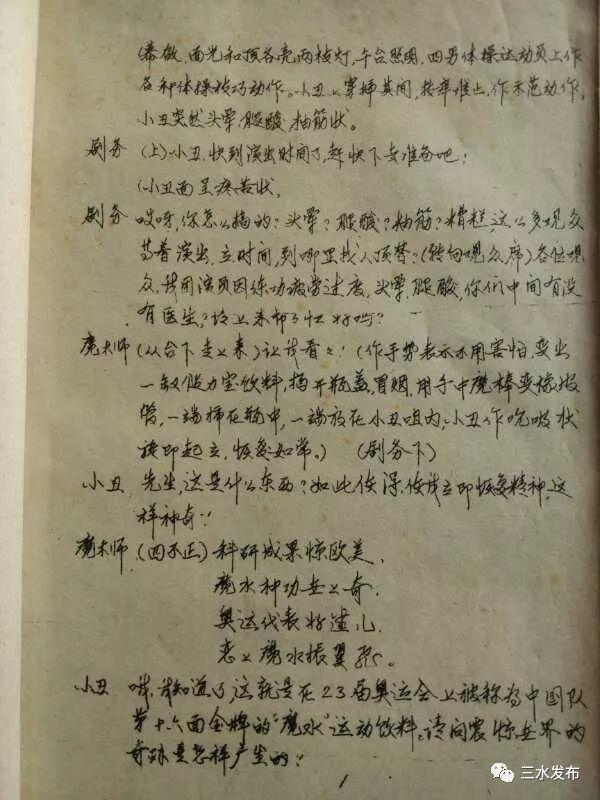 (幕启，面光和顶各亮两枝灯，午台照明，四男体操运动员上作
各种体操技巧动作。小丑上穿插其间，接牵难上，作示范动作，
小丑突然头晕、腿酸、抽筋状。
剧务 (上)小丑，快到演出时间了，赶快下去准备吧！
(小丑面呈疼苦状，
剧务 哎呀，你怎么搞的？头晕？腿酸？抽筋？糟糕，这么多观众
等着演出，立时间，到哪里找人顶替？(转向观众席)各位观
众，我用演员因练功疲劳过度，头晕、腿酸，你们中间有没
有医生？上来帮个忙好吗？
魔大师 (从台下走上来)让我看看！(作手势表示不用害怕，变出
一缶健力宝饮料，揭开瓶盖，冒烟，用手中魔棒变橡胶
管，一端插在瓶中，一端放在小丑咀内，小丑作吮吸状
后即起立，恢复如常。) (剧务下)
小丑 先生，这是什么东西？如此使得使我立即恢复精神，这
样神奇！
魔大师 (四不正)科研成果惊欧美，
魔水神功世上奇，
奥运代表好健儿，
恋上魔水振翼飞。
小丑 哦，我知道了，这就是在23届奥运会上被称为中国队
第十六面金牌的“魔水”运动饮料，请问震惊世界的
奇迹是怎样产生的？
1
三水发布